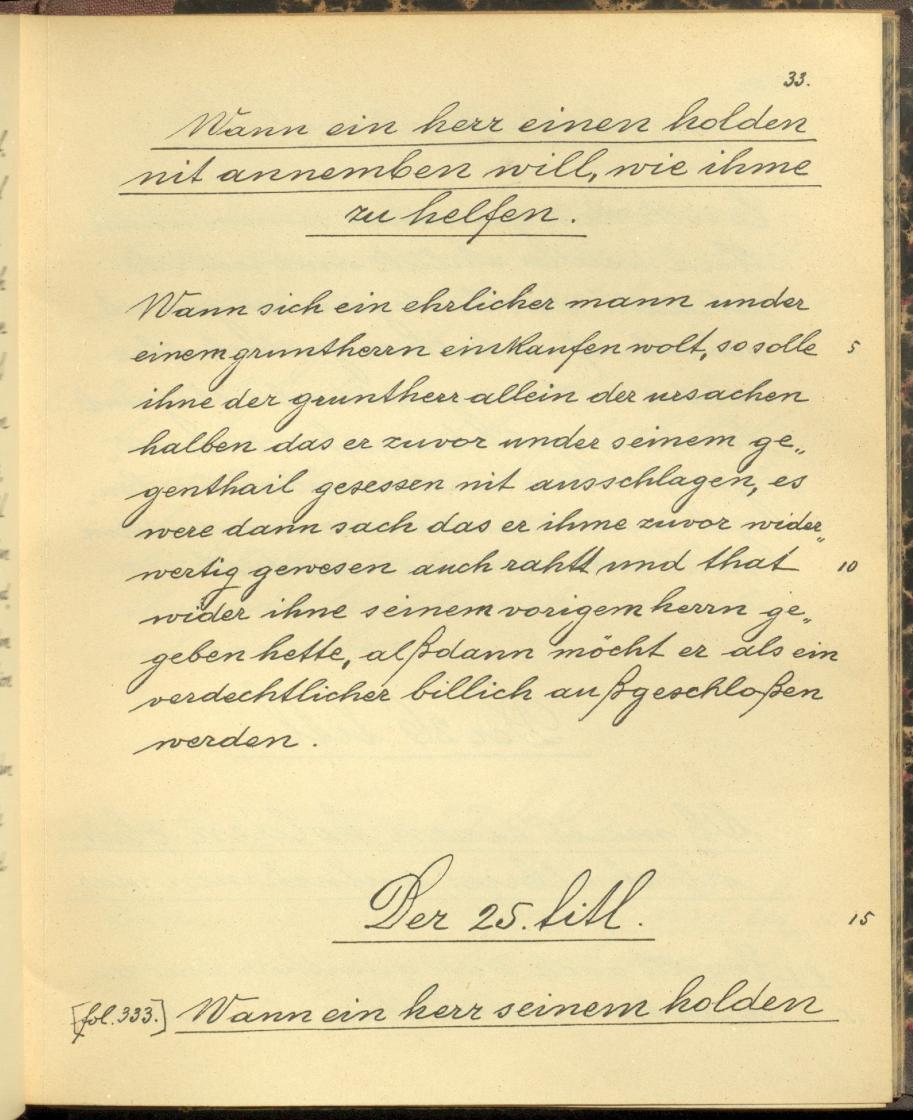 33.
Wann ein herr einen holden
nit annemben will, wie ihme
zu helfen.
Wann sich ein ehrlicher mann under
einem gruntherrn einkaufen wolt, so solle 5
ihne der gruntherr allein der ursachen
halben das er zuvor under seinem ge„
genthail gesessen nit ausschlagen, es
were dann sach das er ihme zuvor wider„
wertig gewesen auch rahtt und that 10
wider ihne seinem vorigem herrn ge„
geben hette, alßdann möcht er als ein
verdechtlicher billich außgeschloßen
werden.
Der 25. titl. 15
[fol. 333.] Wann ein herr seinem holden